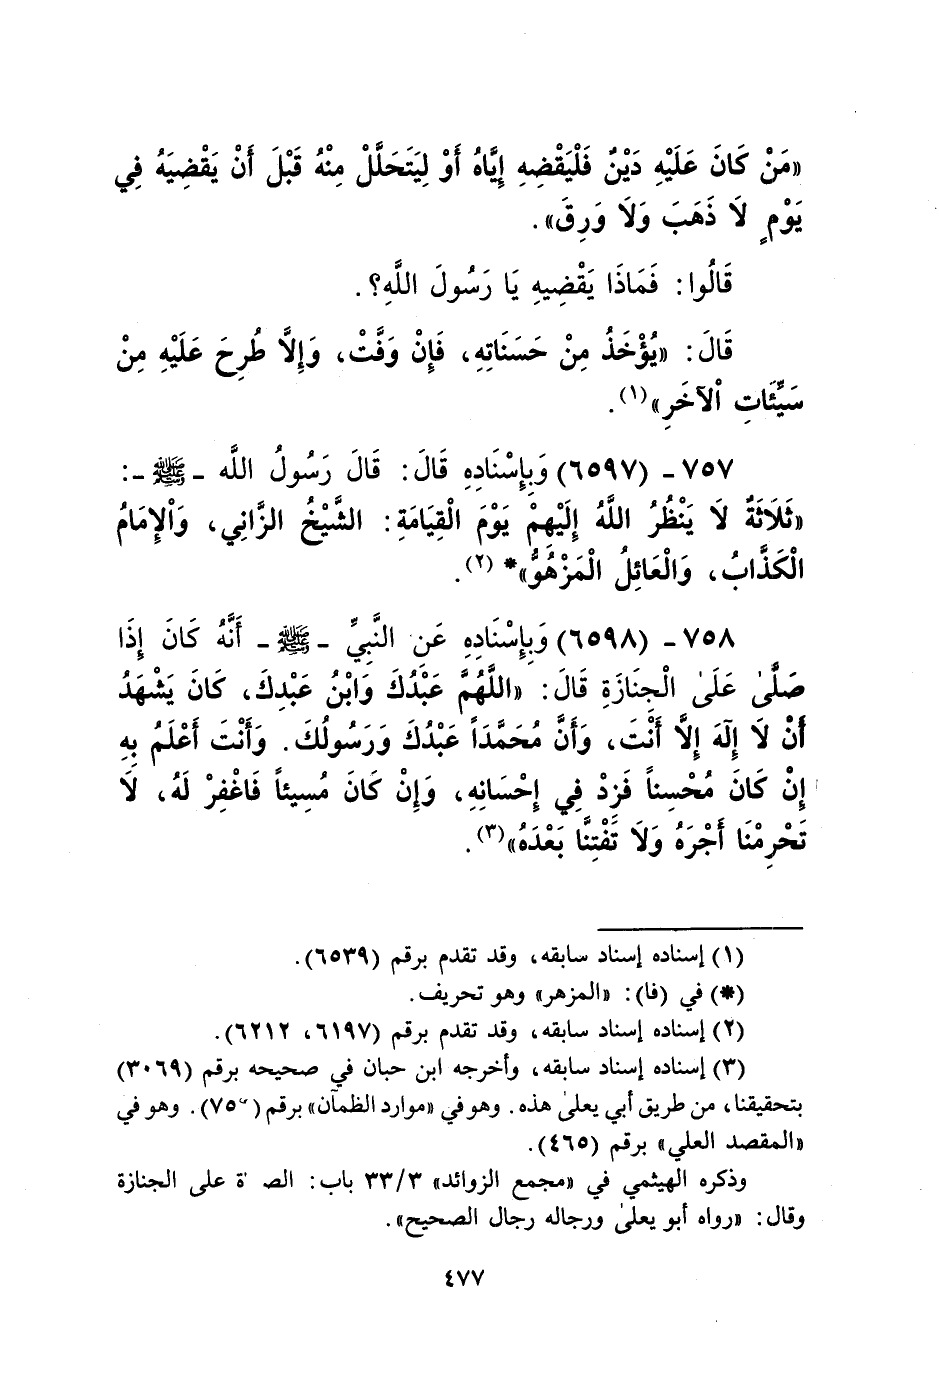 «مَنْ كَانَ عَلَيْهِ دَيْنٌ فَلْيَقْضِهِ إِيَّاهُ أَوْ لِيَتَحَلَّلْ مِنْهُ قَبْلَ أَنْ يَقْضِيَهُ فِي
يَوْمٍ لَا ذَهَبَ وَلَا وَرِقَ».
قَالُوا: فَمَاذَا يَقْضِيهِ يَا رَسُولَ اللَّهِ؟.
قَالَ: «يُؤْخَذُ مِنْ حَسَنَاتِهِ، فَإِنْ وَفَّتْ، وَإِلَّا طُرِحَ عَلَيْهِ مِنْ
سَيِّئَاتِ الْآخَرِ»(١).
٧٥٧ - (٦٥٩٧) وَبِإِسْنَادِهِ قَالَ: قَالَ رَسُولُ اللَّه - ﷺ -:
«ثَلَاثَةٌ لَا يَنْظُرُ اللَّهُ إِلَيْهِمْ يَوْمَ الْقِيَامَةِ: الشَّيْخُ الزَّانِي، وَالْإِمَامُ
الْكَذَّابُ، وَالْعَائِلُ الْمَزْهُوُّ»* (٢).
٧٥٨ - (٦٥٩٨) وَبِإِسْنَادِهِ عَنِ النَّبِيِّ - ﷺ - أَنَّهُ كَانَ إِذَا
صَلَّىٰ عَلَىٰ الْجِنَازَةِ قَالَ: «اللَّهُمَّ عَبْدُكَ وَابْنُ عَبْدِكَ، كَانَ يَشْهَدُ
أَنْ لَا إِلَهَ إِلَّا أَنْتَ، وَأَنَّ مُحَمَّدَاً عَبْدُكَ وَرَسُولُكَ. وَأَنْتَ أَعْلَمُ بِهِ
إِنْ كَانَ مُحْسِناً فَزِدْ فِي إِحْسَانِهِ، وَإِنْ كَانَ مُسِيئاً فَاغْفِرْ لَهُ، لَا
تَحْرِمْنَا أَجْرَهُ وَلَا تَفْتِنَّا بَعْدَهُ»(٣).
(١) إسناده إسناد سابقه، وقد تقدم برقم (٦٥٣٩).
(*) في (فا): «المزهر» وهو تحريف.
(٢) إسناده إسناد سابقه، وقد تقدم برقم (٦١٩٧، ٦٢١٢).
(٣) إسناده إسناد سابقه، وأخرجه ابن حبان في صحيحه برقم (٣٠٦٩)
بتحقيقنا، من طريق أبي يعلىٰ هذه. وهو في «موارد الظمآن» برقم. وهو في
«المقصد العلي» برقم (٤٦٥).
وذكره الهيثمي في «مجمع الزوائد» ٣٣/٣ باب: على الجنازة
وقال: «رواه أبو يعلىٰ ورجاله رجال الصحيح».
٤٧٧